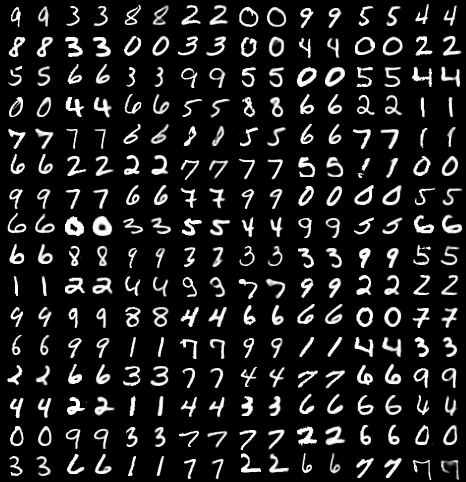 9 9 3 3 8 8 2 2 0 0 9 9 5 5 4 4
8 8 3 3 0 0 3 3 0 0 4 4 0 0 2 2
5 5 6 6 3 3 9 9 5 5 0 0 5 5 4 4
0 0 4 4 6 6 5 5 8 8 6 6 2 2 1 1
7 7 7 7 6 6 8 8 5 5 6 6 7 7 1 1
6 6 2 2 2 2 7 7 7 7 5 5 1 1 0 0
9 9 7 7 6 6 7 7 9 9 0 0 0 0 5 5
6 6 0 0 3 3 5 5 4 4 9 9 5 5 6 6
6 6 8 8 9 9 3 3 3 3 3 3 9 9 5 5
1 1 2 2 4 4 9 9 7 7 9 9 2 2 2 2
9 9 9 9 8 8 4 4 6 6 6 6 0 0 7 7
6 6 9 9 1 1 7 7 9 9 1 1 4 4 3 3
2 2 6 6 3 3 7 7 4 4 7 7 6 6 9 9
4 4 2 2 1 1 4 4 3 3 6 6 6 6 4 4
0 0 9 9 3 3 7 7 7 7 2 2 6 6 0 0
3 3 6 6 1 1 7 7 2 2 6 6 7 7